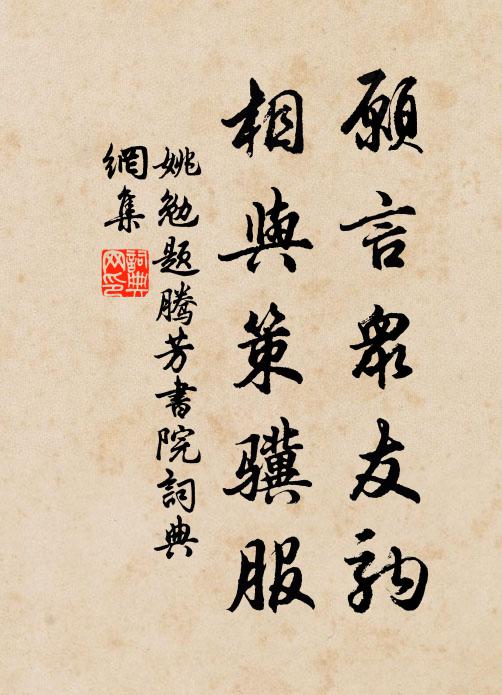 願言眾友朋
相與策驥服
姚勉題騰芳書院詞典
網集
詞典
网印